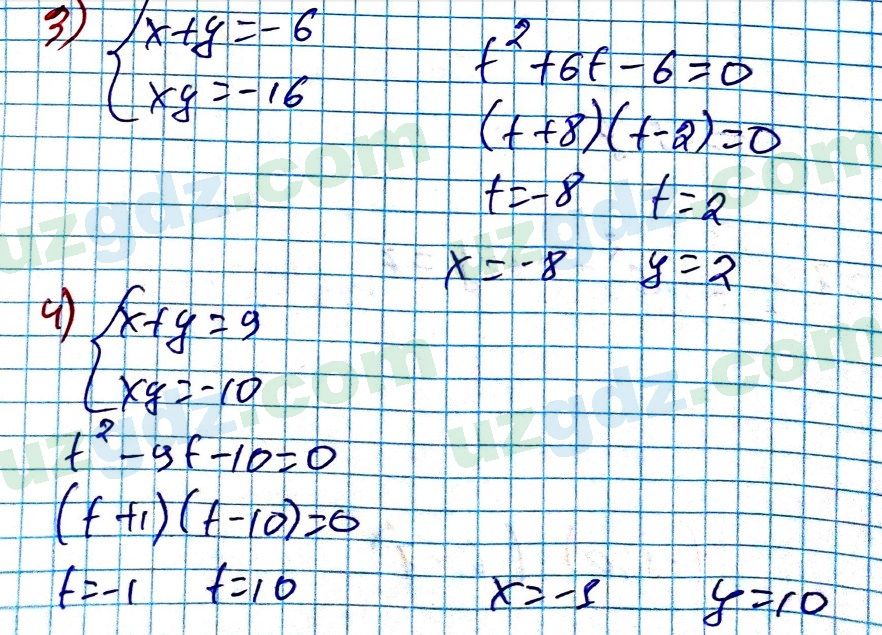 3) { x+y=-6
xy=-16
t²+6t-6=0
(t+8)(t-2)=0
t=-8 t=2
x=-8 y=2
4) { x+y=9
xy=-10
t²-9t-10=0
(t+1)(t-10)=0
t=-1 t=10
x=-1 y=10
uzgdz.com
uzgdz.com
uzgdz.com
uzgdz.com